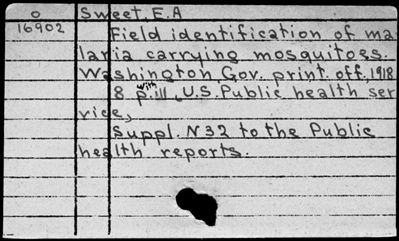 o Sweet, E.A
16902 Field identification of ma-
laria carrying mosquitoes.
Washington, Gov. print. off., 1918
8 p. with ill., U.S. Public health ser
vice,
Suppl. N 32 to the Public
health reports.